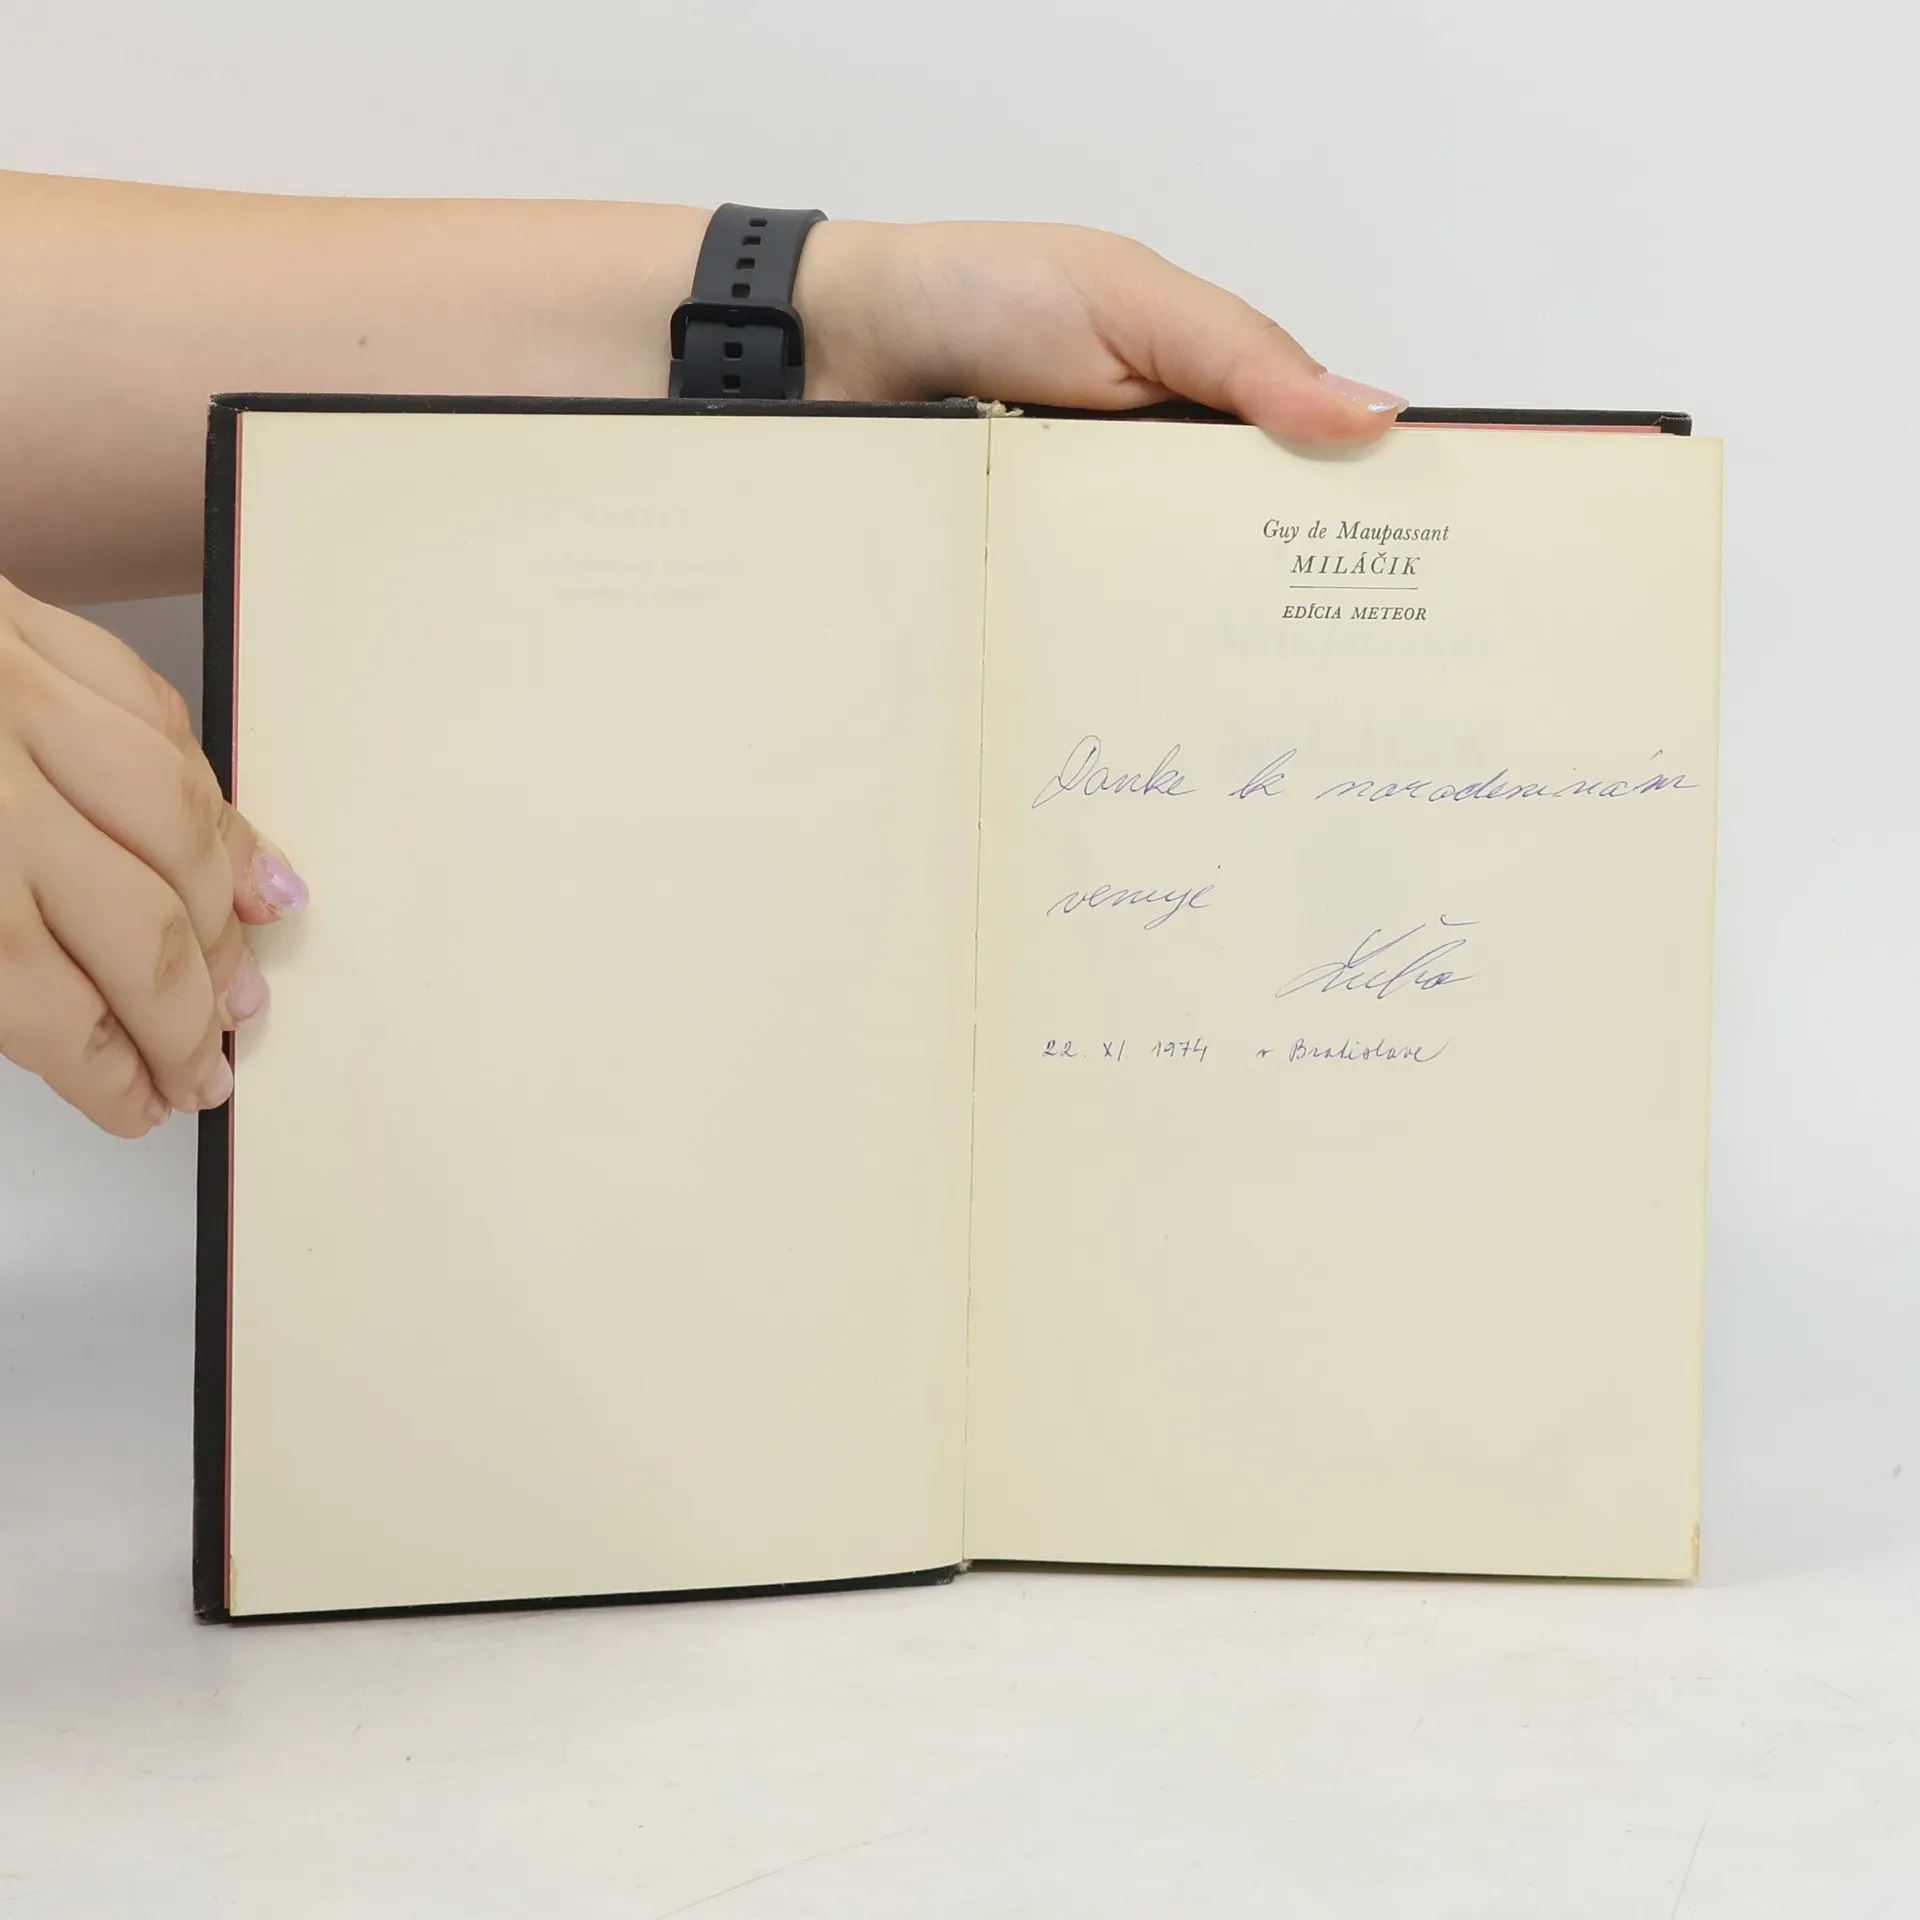 Guy de Maupassant
MILÁČIK
EDÍCIA METEOR
Danke k narodeninám
venuje
Ľubo
22. XI 1974 v Bratislave